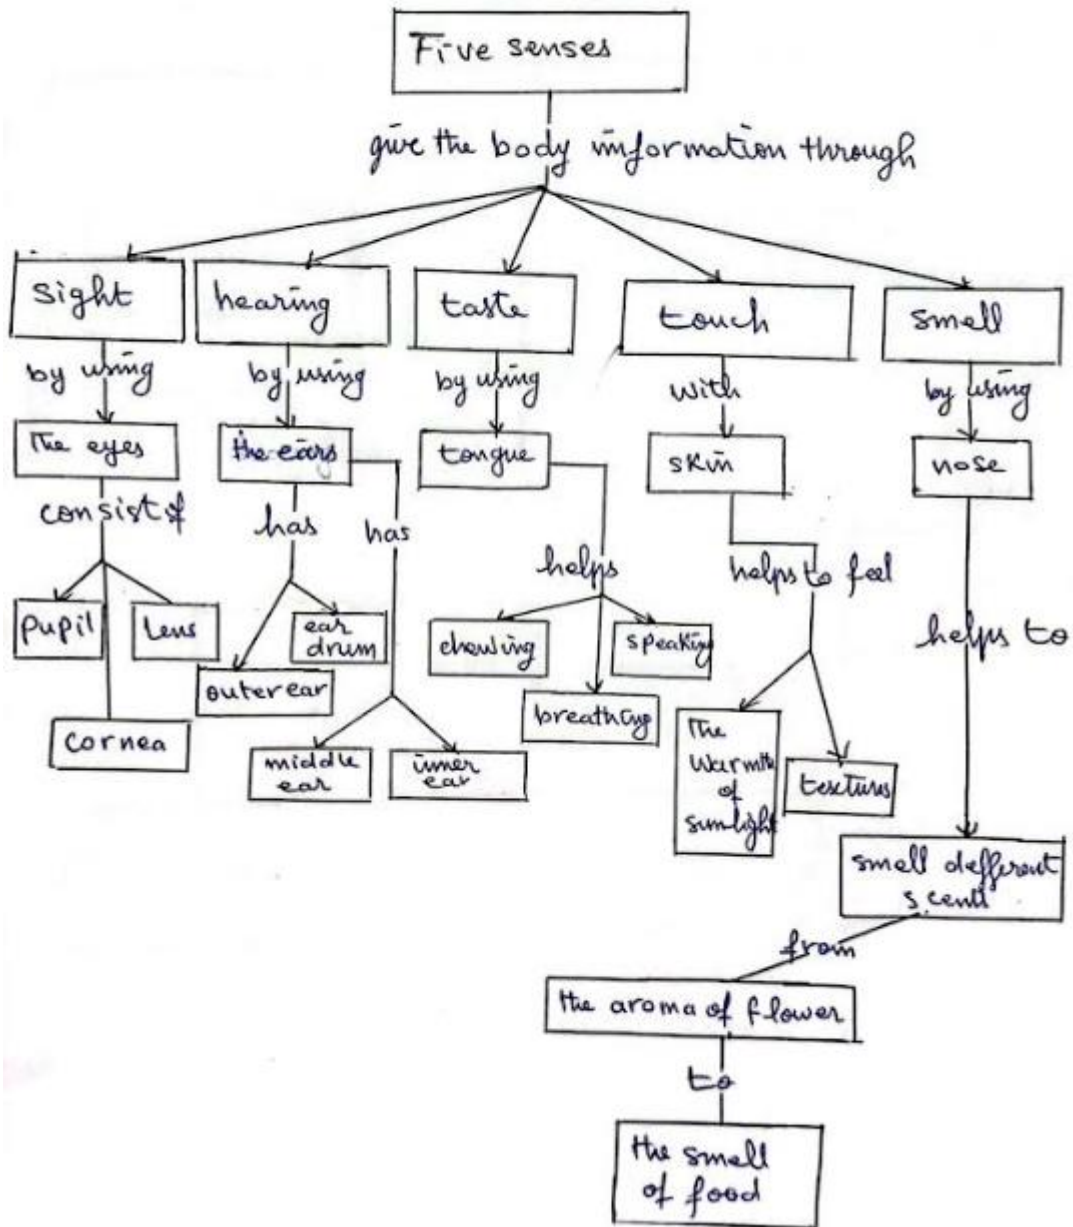 Five senses
give the body information through
sight
hearing
taste
touch
smell
by using
by using
by using
with
by using
The eyes
the ears
tongue
skin
nose
consist of
has
has
helps
helps to feel
helps to
pupil
lens
cornea
ear
drum
outer ear
middle
ear
inner
ear
chewing
speaking
breathing
The
warmth
of
sunlight
textures
smell defferent
scents
from
the aroma of flower
to
the smell
of food